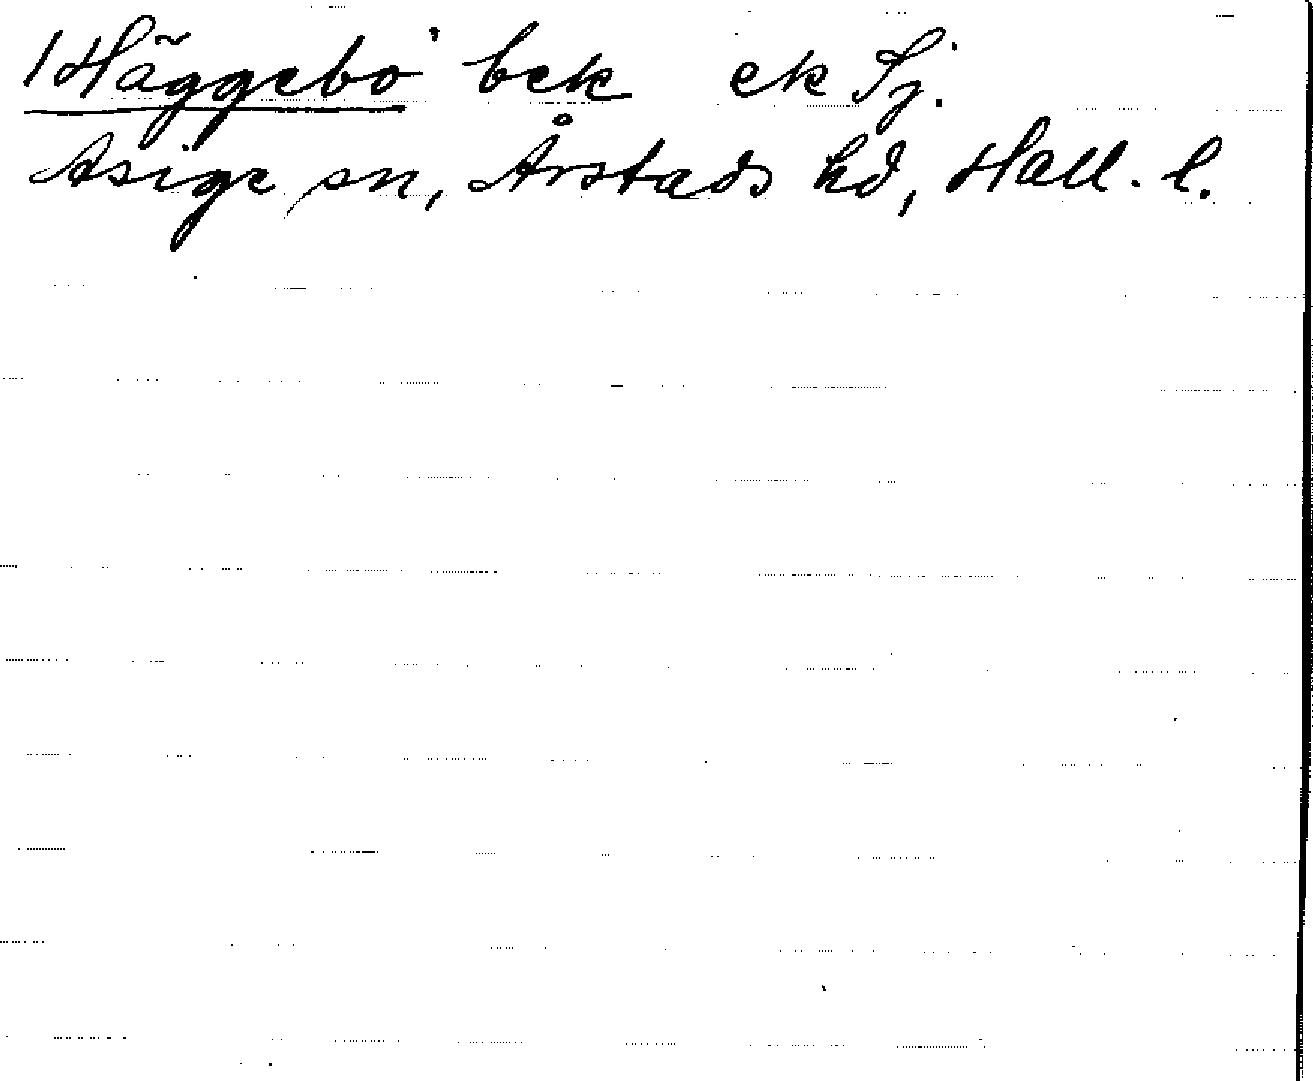 /Häggebo bek ek Sj.
Asige sn, Årstads hd, Hall. l.